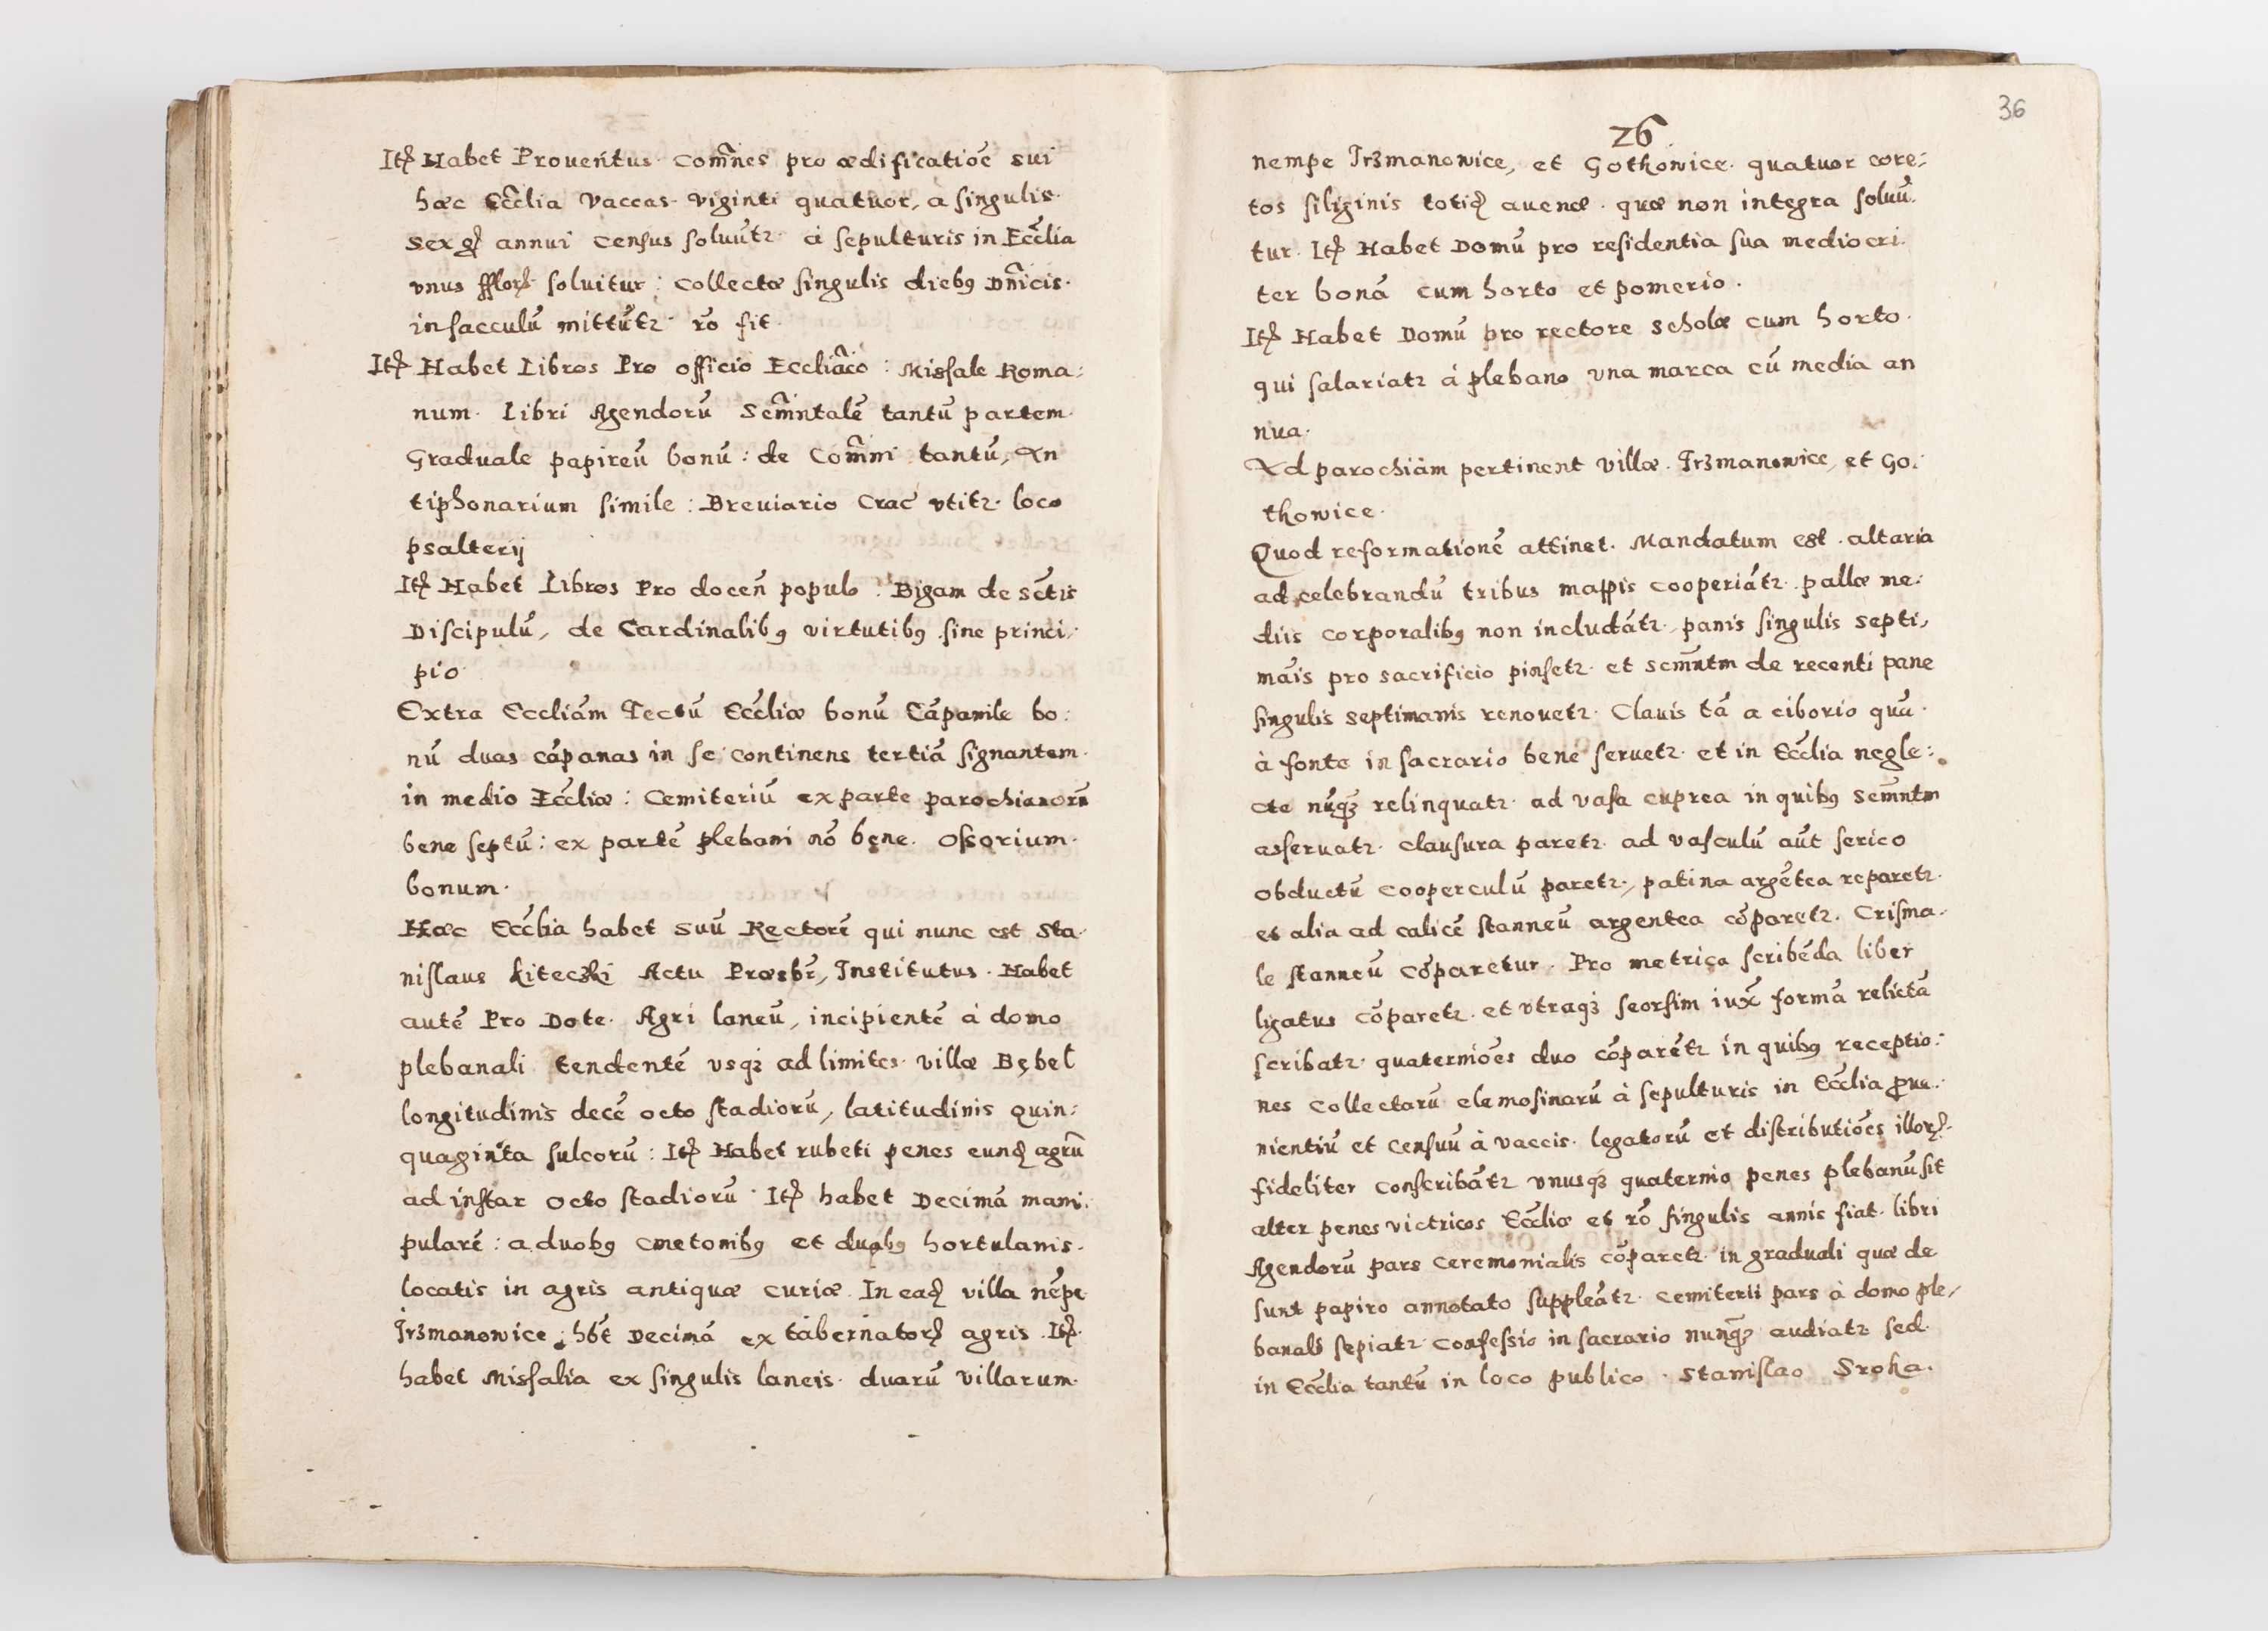 Itꝫ Habet Prouentus com̃nes pro ædificatioē sui
hæc Ecc̃lia Vaccas viginti quatuor, a singulis
sex gꝫ annui census soluũtr à sepulturis in Ecc̃lia
vnus fflorꝫ soluitur: collectæ singulis diebꝰ Dñicis
in sacculũ mittũtr rõ fit
Itꝫ Habet Libros Pro officio Eccliãco: Missale Roma:
num Libri Agendorũ Sem̃ntalẽ tantũ partem
Graduale papireũ bonũ: de Com̃ni tantũ, An
tiphonarium simile: Breuiario Crac̃ vtitr loco
psalterij
Itꝫ Habet Libros Pro doceñ populo: Bigam de Sc̃tis
Discipulũ, de Cardinalibꝰ virtutibꝰ sine princi,
pio
Extra Eccliãm Tectũ Ecc̃liæ bonũ Cãpanile bo:
nũ duas cãpanas in se continens tertiã signantem
in medio Ecc̃liæ: Cemiteriũ ex parte parochianorũ
bene septũ: ex partẽ plebani nõ bene. Ossorium
bonum.
Hæc Ecc̃lia habet suũ Rectorẽ qui nunc est Sta
nislaus Liteczki Actu Præsbr̃, Institutus. Habet
autẽ Pro Dote. Agri laneũ, incipientẽ à domo
plebanali tendentẽ vsqꝫ ad limites villæ Bębel
longitudinis decẽ octo stadiorũ, latitudinis quin:
quaginta sulcorũ: Itꝫ Habet rubeti penes eundꝫ agrũ
ad instar octo stadiorũ Itꝫ habet Decimã mani:
pularẽ: a duobꝰ cmetonibꝰ et duabꝰ hortulanis.
locatis in agris antiquæ curiæ. In eadꝫ villa nẽpe
Trzmanowice, hẽt Decimã ex tabernatorꝫ agris. Itꝫ
habet Missalia ex singulis laneis duarũ villarum
36
26
nempe Trzmanowice, et Gothowice quatuor core:
tos siliginis totidꝫ auenæ quæ non integra soluũ
tur. Itꝫ Habet Domũ pro residentia sua mediocri
ter bonã cum horto et pomerio.
Itꝫ Habet Domũ pro rectore scholæ cum horto
qui salariatr à plebano vna marca cũ media an
nua.
Ad parochiãm pertinent villæ. Trzmanowice, et Go:
thowice.
Quod reformationẽ attinet. Mandatum est altaria
ad celebrandũ tribus mappis cooperiãtr pallæ me:
diis corporalibꝰ non includãtr, panis singulis septi,
mãis pro sacrificio pinsetr et sem̃ntm de recenti pane
singulis septimanis renouetr. Clauis tã a ciborio quã
à fonte in sacrario bene seruetr et in Ecc̃lia negle:
cte nũqꝫ relinquatr ad vasa cuprea in quibꝰ sem̃ntm
asseruatr clausura paretr ad vasculũ aũt serico
obductũ cooperculũ paretr, patina argẽtea reparetr
et alia ad calicẽ stanneũ argentea cõparetr. Crisma
le stanneũ cõparetur. Pro metrica scribẽda liber
ligatus cõparetr et vtraqꝫ seorsim iux̃ formã relictã
scribatr quaterniões duo cõparẽtr in quibꝰ receptio:
nes collectarũ elemosinarũ à sepulturis in Ecc̃lia proue
nientiũ et censuũ à vaccis legatorũ et distributiões illorꝫ
fideliter conscribãtr vnusqꝫ quaternio penes plebanũ sit
alter penes victricos Ecc̃liæ et rõ singulis annis fiat libri
Agendorũ pars ceremonialis cõparetr in graduali quæ de
sunt papiro annotato suppleãtr cemiterii pars à domo ple,
banali sepiatr confessio in sacrario nunqꝫ audiatr sed
in Ecc̃lia tantũ in loco publico. Stanislao Sroka.